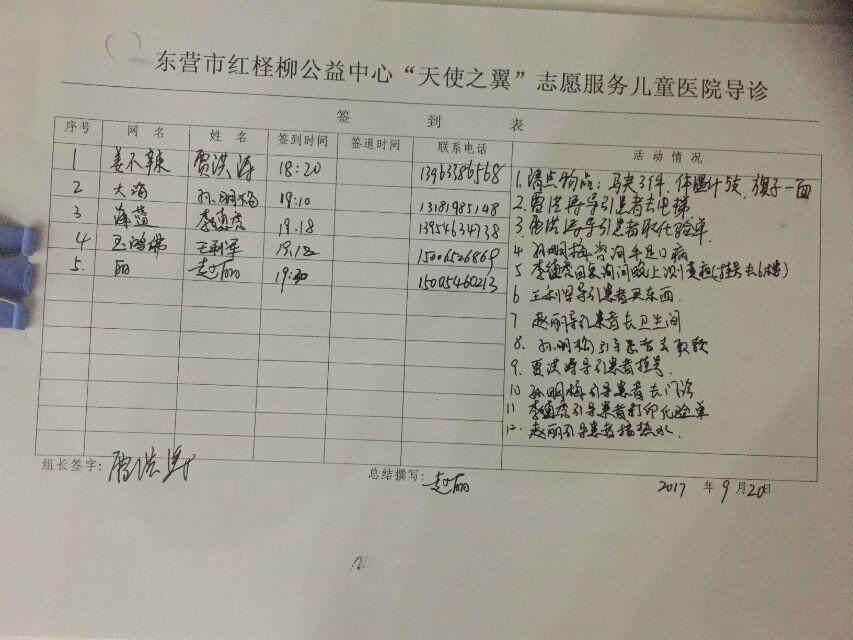 东营市红柽柳公益中心“天使之翼”志愿服务儿童医院导诊
签到表
序号 网名 姓名 签到时间 签退时间 联系电话 活动情况
1 姜不辣 贾洪涛 18:20 13963386568
2 大海 孙明梅 19:10 13181985148
3 海蓝 李德虎 19.18 13954634738
4 玉鸿儒 王利军 19.18 15006526869
5. 丽 赵丽 19:20 15005460213
1.清点物品:马夹3件.体温计5支.旗子一面
2.贾洪涛导引患者去电梯
3.贾洪涛导引患者取化验单
4 孙明梅咨询手足口病
5 李德虎回复询问晚上测 (挂号去6楼)
6 王利军导引患者买东西.
7 赵丽导引患者去卫生间
8. 孙明梅引导患者去取款
9. 贾洪涛导引患者挂号.
10 孙明梅引导患者去门诊
11 李德虎引导患者打印化验单
12. 赵丽引导患者接热水.
组长签字: 贾洪涛 总结撰写: 赵丽 2017 年 9 月 20 日